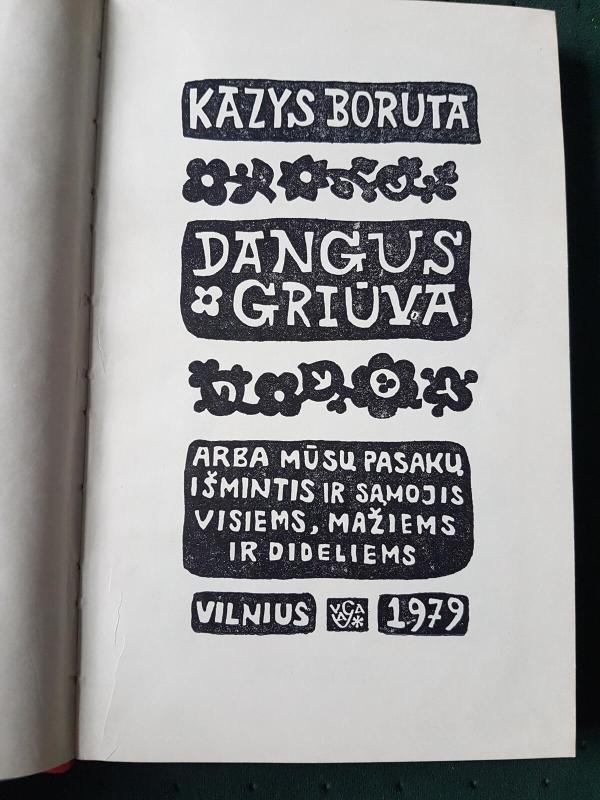 KAZYS BORUTA
DANGUS
GRIŪVA
ARBA MŪSŲ PASAKŲ
IŠMINTIS IR SĄMOJIS
VISIEMS, MAŽIEMS
IR DIDELIEMS
VILNIUS VAGA 1979